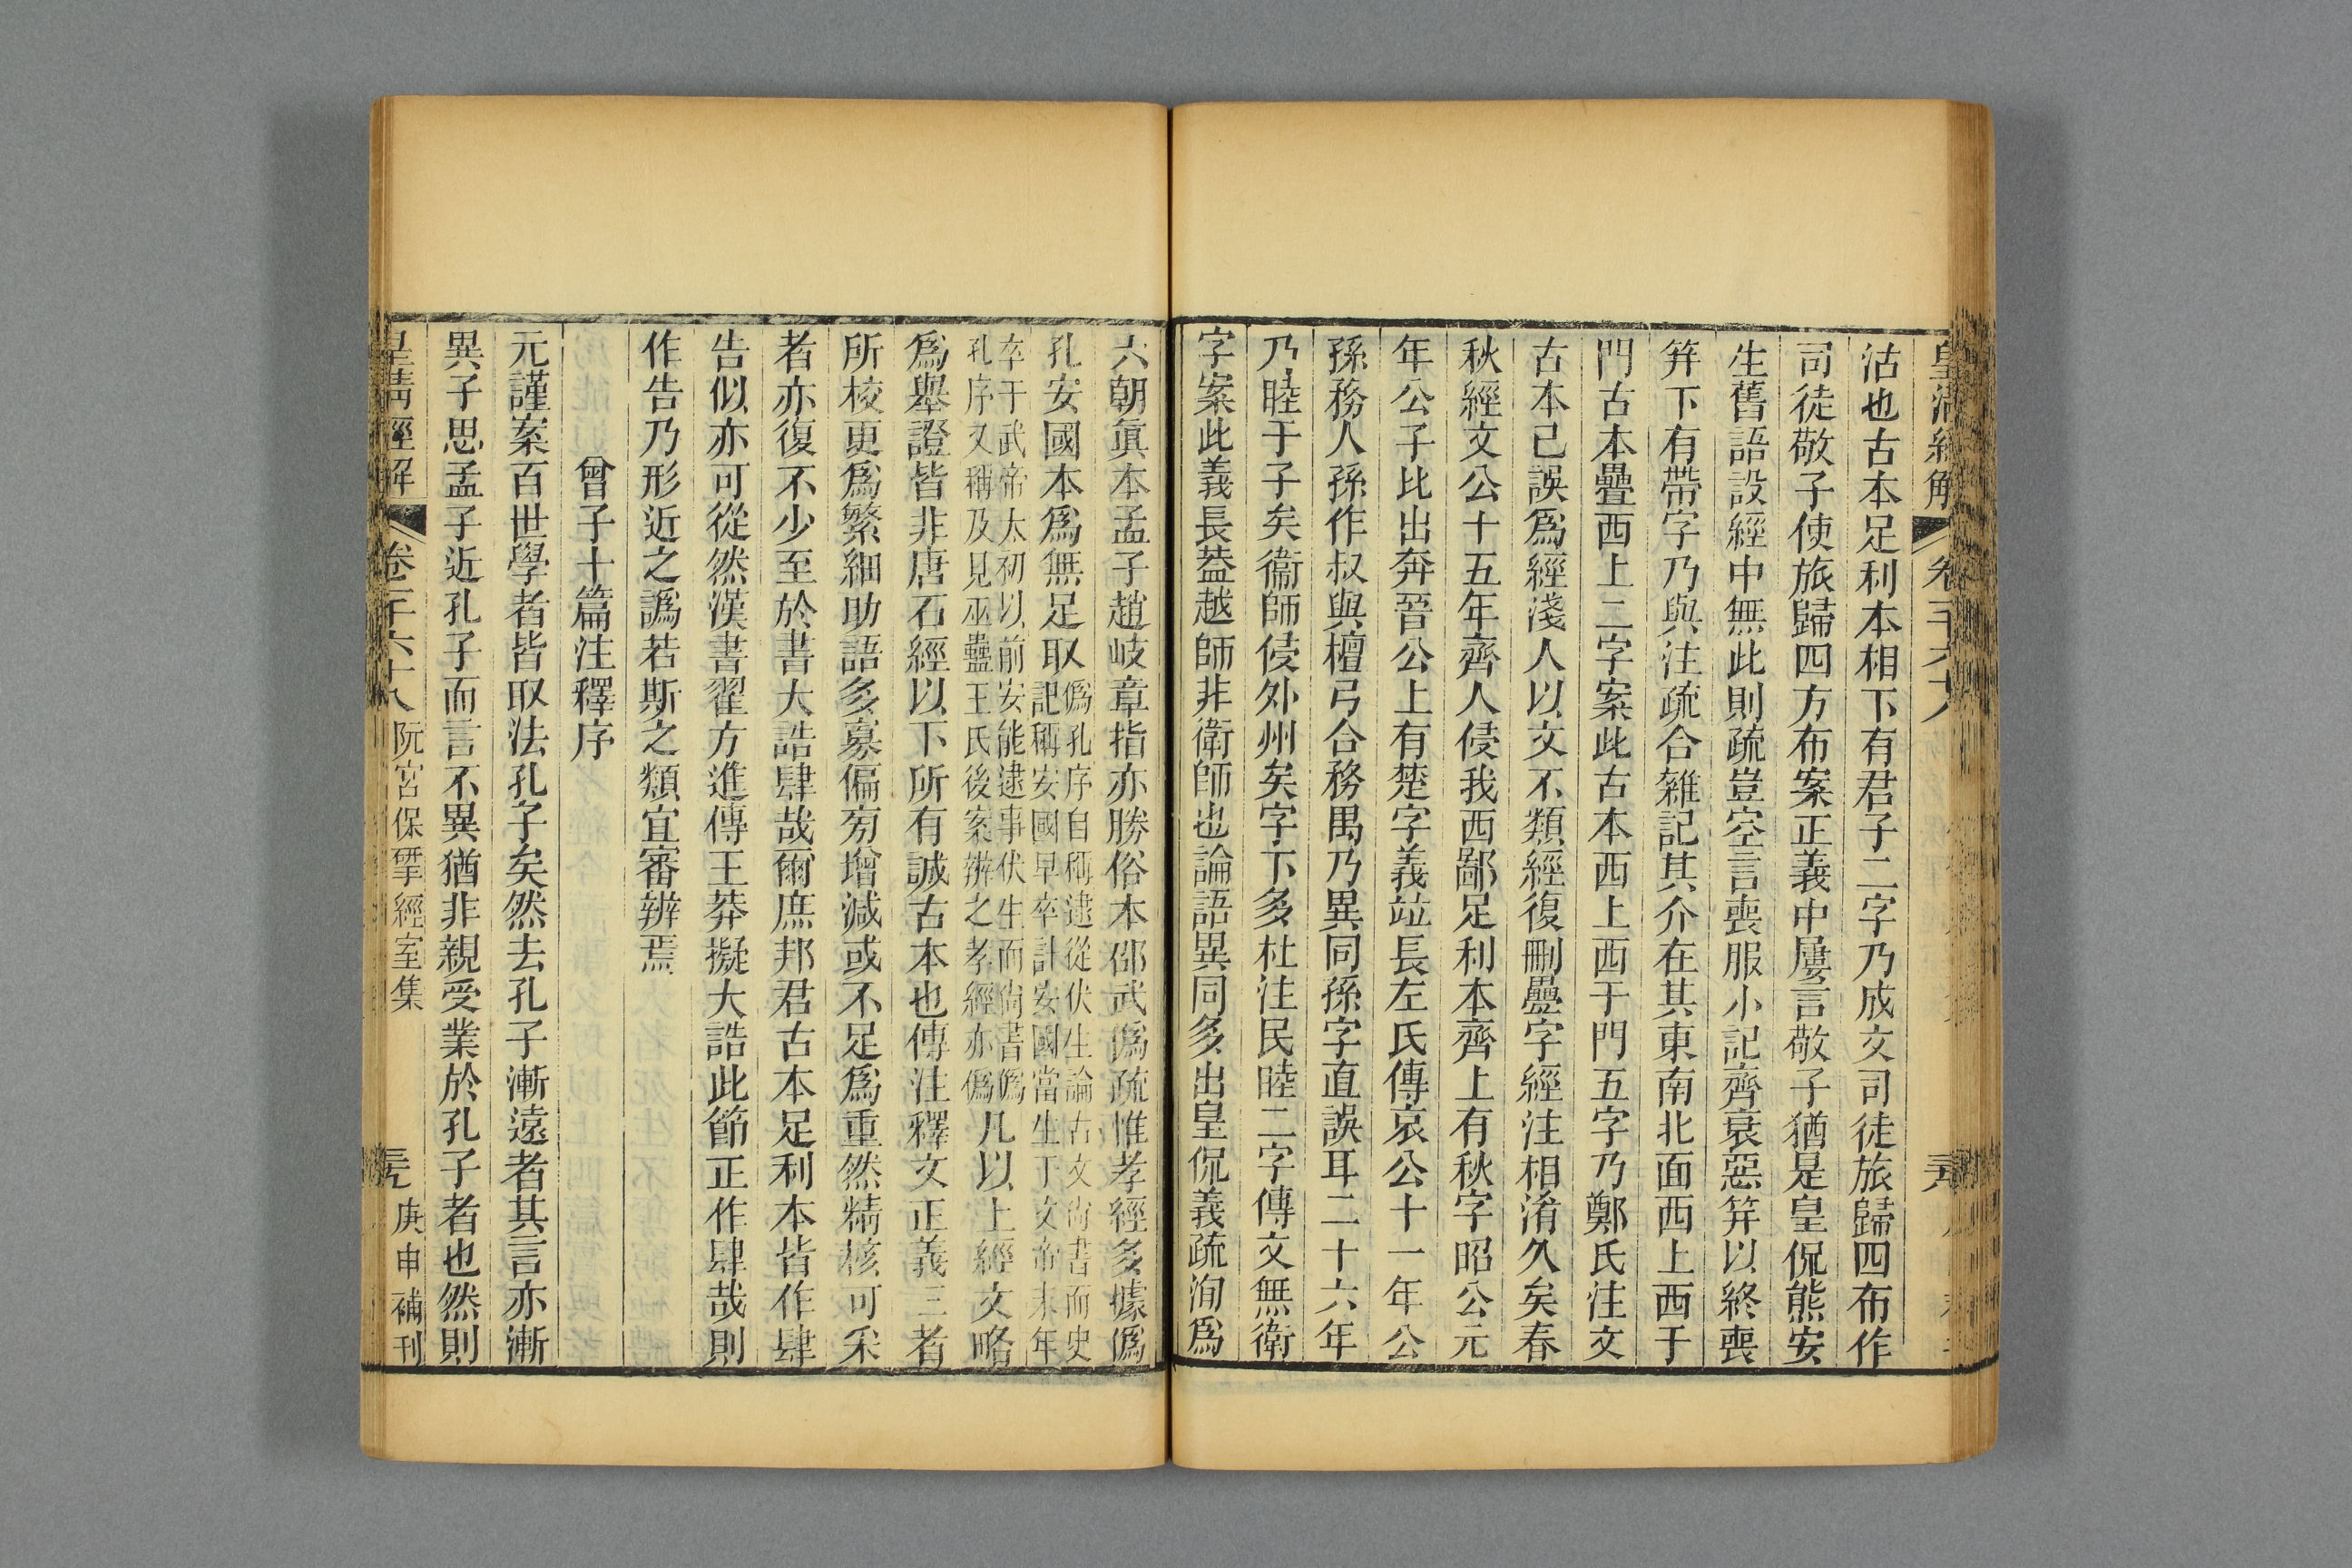 皇清經解
卷一千六十八
沽也古本足利本相下有君子二字乃成文司徒旅歸四布作
司徒敬子使旅歸四方布案正義中屢言敬子猶是皇侃熊安
生舊語設經中無此則疏豈空言喪服小記齊衰惡笄以終喪
笄下有帶字乃與注疏合雜記其介在其東南北面西上西于
門古本疊西上二字案此古本西上西于門五字乃鄭氏注文
古本已誤爲經淺人以文不類經復刪疊字經注相淆久矣春
秋經文公十五年齊人侵我西鄙足利本齊上有秋字昭公元
年公子比出奔晉公上有楚字義竝長左氏傳哀公十一年公
孫務人孫作叔與檀弓合務禺乃異同孫字直誤耳二十六年
乃睦于子矣衞師侵外州矣字下多杜注民睦二字傳文無衛
字案此義長葢越師非衛師也論語異同多出皇侃義疏洵爲
六朝眞本孟子趙岐章指亦勝俗本邵武僞疏惟孝經多據僞
孔安國本爲無足取
僞孔序自稱逮從伏生論古文尚書而史
記稱安國早卒計安國當生于文帝末年
卒于武帝太初以前安能逮事伏生而尚書僞
孔序又稱及見巫蠱王氏後案辨之孝經亦僞
凡以上經文略
爲舉證皆非唐石經以下所有誠古本也傳注釋文正義三者
所校更爲繁細助語多寡偏旁增減或不足爲重然精核可采
者亦復不少至於書大誥肆哉爾庶邦君古本足利本皆作肆
告似亦可從然漢書翟方進傳王莽擬大誥此節正作肆哉則
作告乃形近之譌若斯之類宜審辨焉
曾子十篇注釋序
元謹案百世學者皆取法孔子矣然去孔子漸遠者其言亦漸
異子思孟子近孔子而言不異猶非親受業於孔子者也然則
皇清經解
卷一千六十八
阮宮保揅經室集
庚申補刊